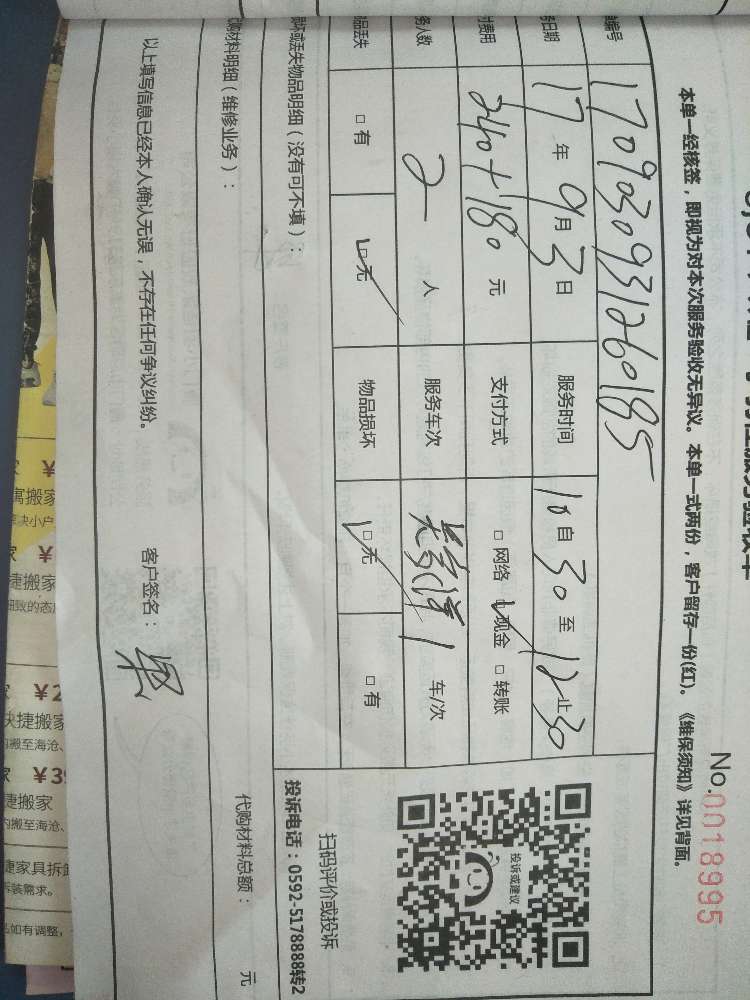 No.0018995
本单一经核签，即视为对本次服务验收无异议。本单一式两份，客户留存一份(红)。《维保须知》详见背面。
编号 1709030931260185
日期 17年9月3日 服务时间 10自30至12止30
费用 240+180元 支付方式 □网络 □现金 □转账
人数 2人 服务车次 1车/次
品丢失 □有 □无 物品损坏 □无 □有
损坏或丢失物品明细（没有可不填）：
代购材料明细（维修业务）：
代购材料总额： 元
以上填写信息已经本人确认无误，不存在任何争议纠纷。 客户签名：
投诉或建议
扫码评价或投诉
投诉电话：0592-5178888转2
¥
搬家
¥
捷搬家
¥2
快捷搬家
搬至海沧、
¥39
捷搬家
内搬至海沧、
捷家具拆
拆装需求。
如有调整，